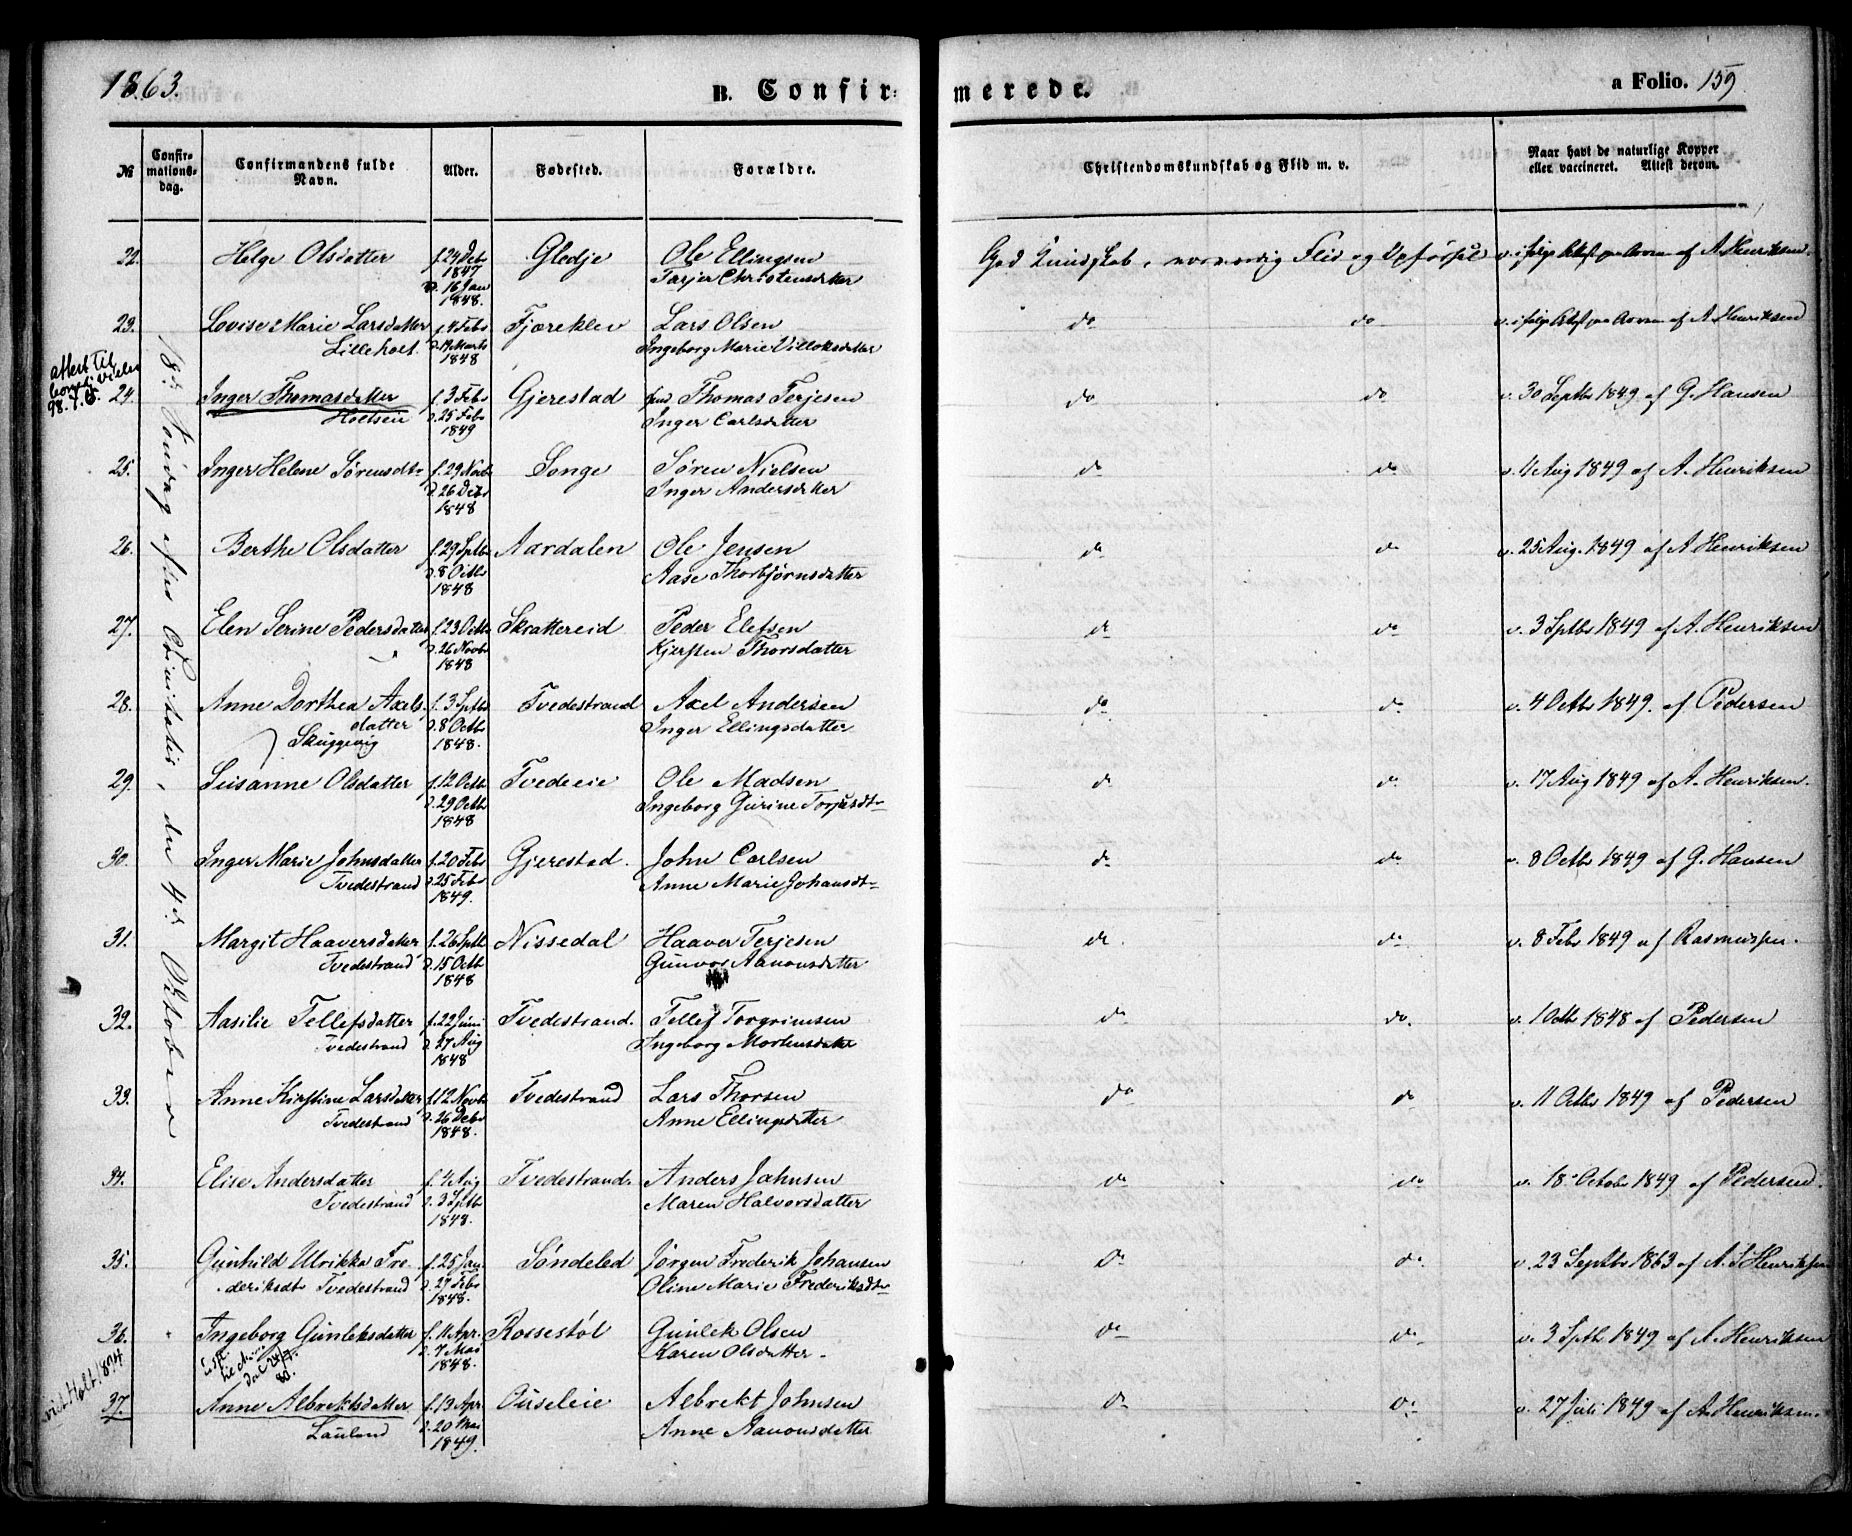 1863.
B. Confirmerede.
a Folio. 159
№
Confirmationsdag.
Confirmandens fulde Navn.
Alder.
Fødested.
Forældre.
Christendomskundskab og Flid m. v.
Naar havt de naturlige Kopper eller vaccineret. Attest derom.
18de Søndag efter Trinitatis, den 4de Oktober
22. Helge Olsdatter f. 24 Debr 1847 Gledje Ole Ellingsen God Kundskab, Flid og Opførsel af A. Henriksen
d. 16 Jan 1848. Tarjer Christensdatter
23. Lovise Marie Larsdatter f. 4 Febr Fjæreklev Lars Olsen do do af A. Henriksen
Lilleholt. d. 19 Marts 1848 Ingeborg Marie
attest til
98.
24. Inger Thomasdatter f. 3 Febr Gjerestad Thomas Terjesen do do v. 30 Septbr 1849 af G. Hansen
d. 25 Febr 1849 Inger Carlsdatter
25. Inger Helene Sørensdtr f. 29 Novbr Songe Søren Nielsen do do v. 11 Aug 1849 af A. Henriksen
d. 26 Debr 1848 Inger Andersdatter
26. Berthe Olsdatter f. 29 Sptbr Aardalen Ole Jensen do do v. 25 Aug. 1849 af A Henriksen
d. 8 Octbr 1848 Aase Thorbjørnsdatter
27. Elen Serine Pedersdatter f. 23 Octb Skrattereid Peder Elefsen do do v. 3 Sptbr 1849 af A. Henriksen
d. 26 Novbr 1848 Kjersten Thorsdatter
28. Anne Dorthea Axels- f. 3 Sptbr Tvedestrand Axel Andersen do do v. 4 Octbr 1849. af Pedersen
datter d. 8 Octbr 1848. Inger Ellingsdatter
Skuggevig
29. Susanne Olsdatter f. 12 Octb Tvedeeie Ole Madsen do do v. 17 Aug 1849 af A. Henriksen.
d. 29 Octb 1848 Ingeborg Gurine
30. Inger Marie Johnsdatter f. 20 Febr Gjerestad. John Carlsen do do v. 8 Octbr 1849 af G. Hansen
Tvedestrand d. 25 Febr 1849. Anne Marie Johansdtr
31. Margit Haaversdatter f. 26 Sptb Nissedal Haaver Terjesen do. do v. 8 Febr 1849 af Rasmussen.
Tvedestrand d. 15 Octb 1848 Gunvor Aanonsdatter
32. Aasilie Tellefsdatter f. 22 Juni Tvedestrand. Tellef Torgrimsen do do. v. 1 Octbr 1848 af Pedersen
Tvedestrand d. 27 Aug 1848 Ingeborg Mortensdatter
33. Anne Kirstine Larsdatter f. 12 Novbr Tvedestrand Lars Thorsen do do v. 11 Octbr 1849 af Pedersen
Tvedestrand d. 26 Debr 1848. Anne Ellingsdatter
34. Elise Andersdatter f. 4 Aug Tvedestrand. Anders Jahnsen do do v. 18 October 1849 af Pedersen.
Tvedestrand d. 3 Sptbr 1848. Maren Halvorsdatter
35. Gunhild Ulrikka Fre- f. 25 Jan Søndeled Jørgen Frederik Johansen do do. v. 23 Septbr 1863 af A. S Henriksen
deriksdtr Tvedestrand d. 27 Febr 1848. Oline Marie Frederiksdtr
36. Ingeborg Gunleksdatter f. 11 Apr. Rossestøl Gunlek Olsen do do v. 3 Sptb 1849 af A. Henriksen
d. 7 Mai 1848. Karen Olsdatter
Holt 1894
37. Anne Albrektsdatter f. 13 Apr Ouseleie Albrekt Johnsen do do v. 27 Juli 1849 af A. Henriksen.
Lauland d. 20 Mai 1849. Anne Aanonsdatter